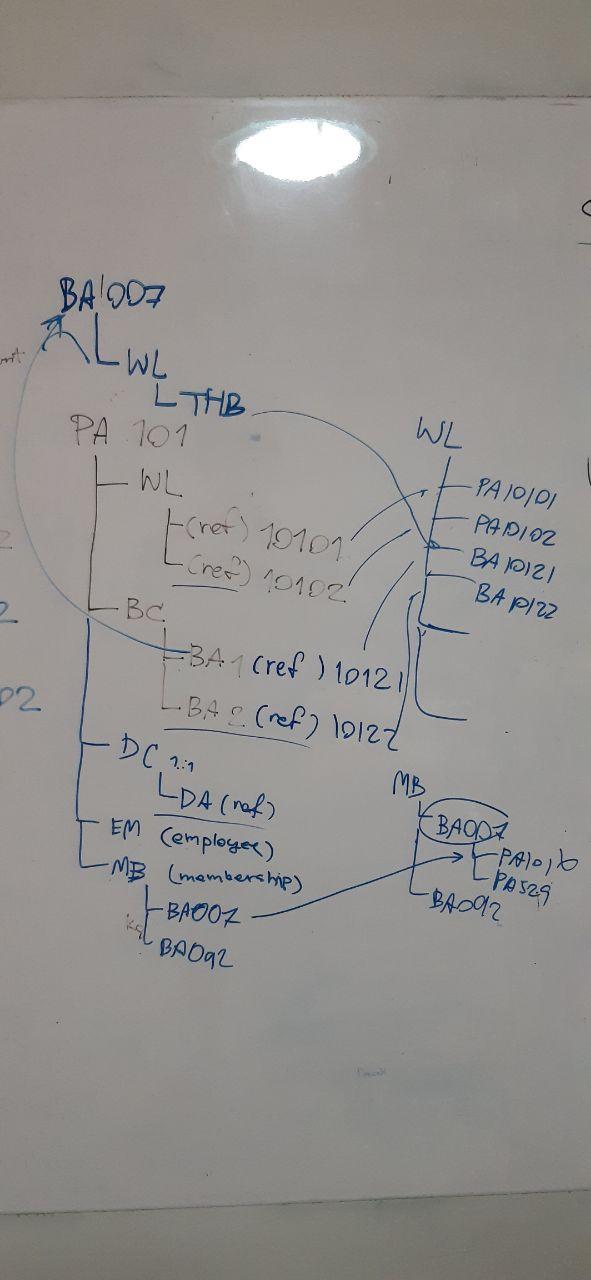 BA1007
WL
THB
PA 101
WL
(ref) 10101
(ref) 10102
BC
BA1 (ref) 10121
BA2 (ref) 10122
DC 1:1
DA (ref)
EM (employee)
MB (membership)
BA007
BA092
WL
PA10101
PA10102
BA10121
BA10122
MB
BA007
PA529
BA092